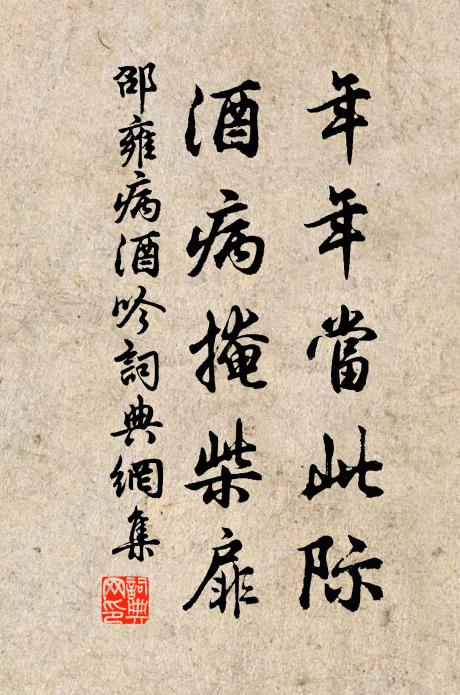 年年當此際
酒病掩柴扉
邵雍病酒吟詞典網集
詞典网印